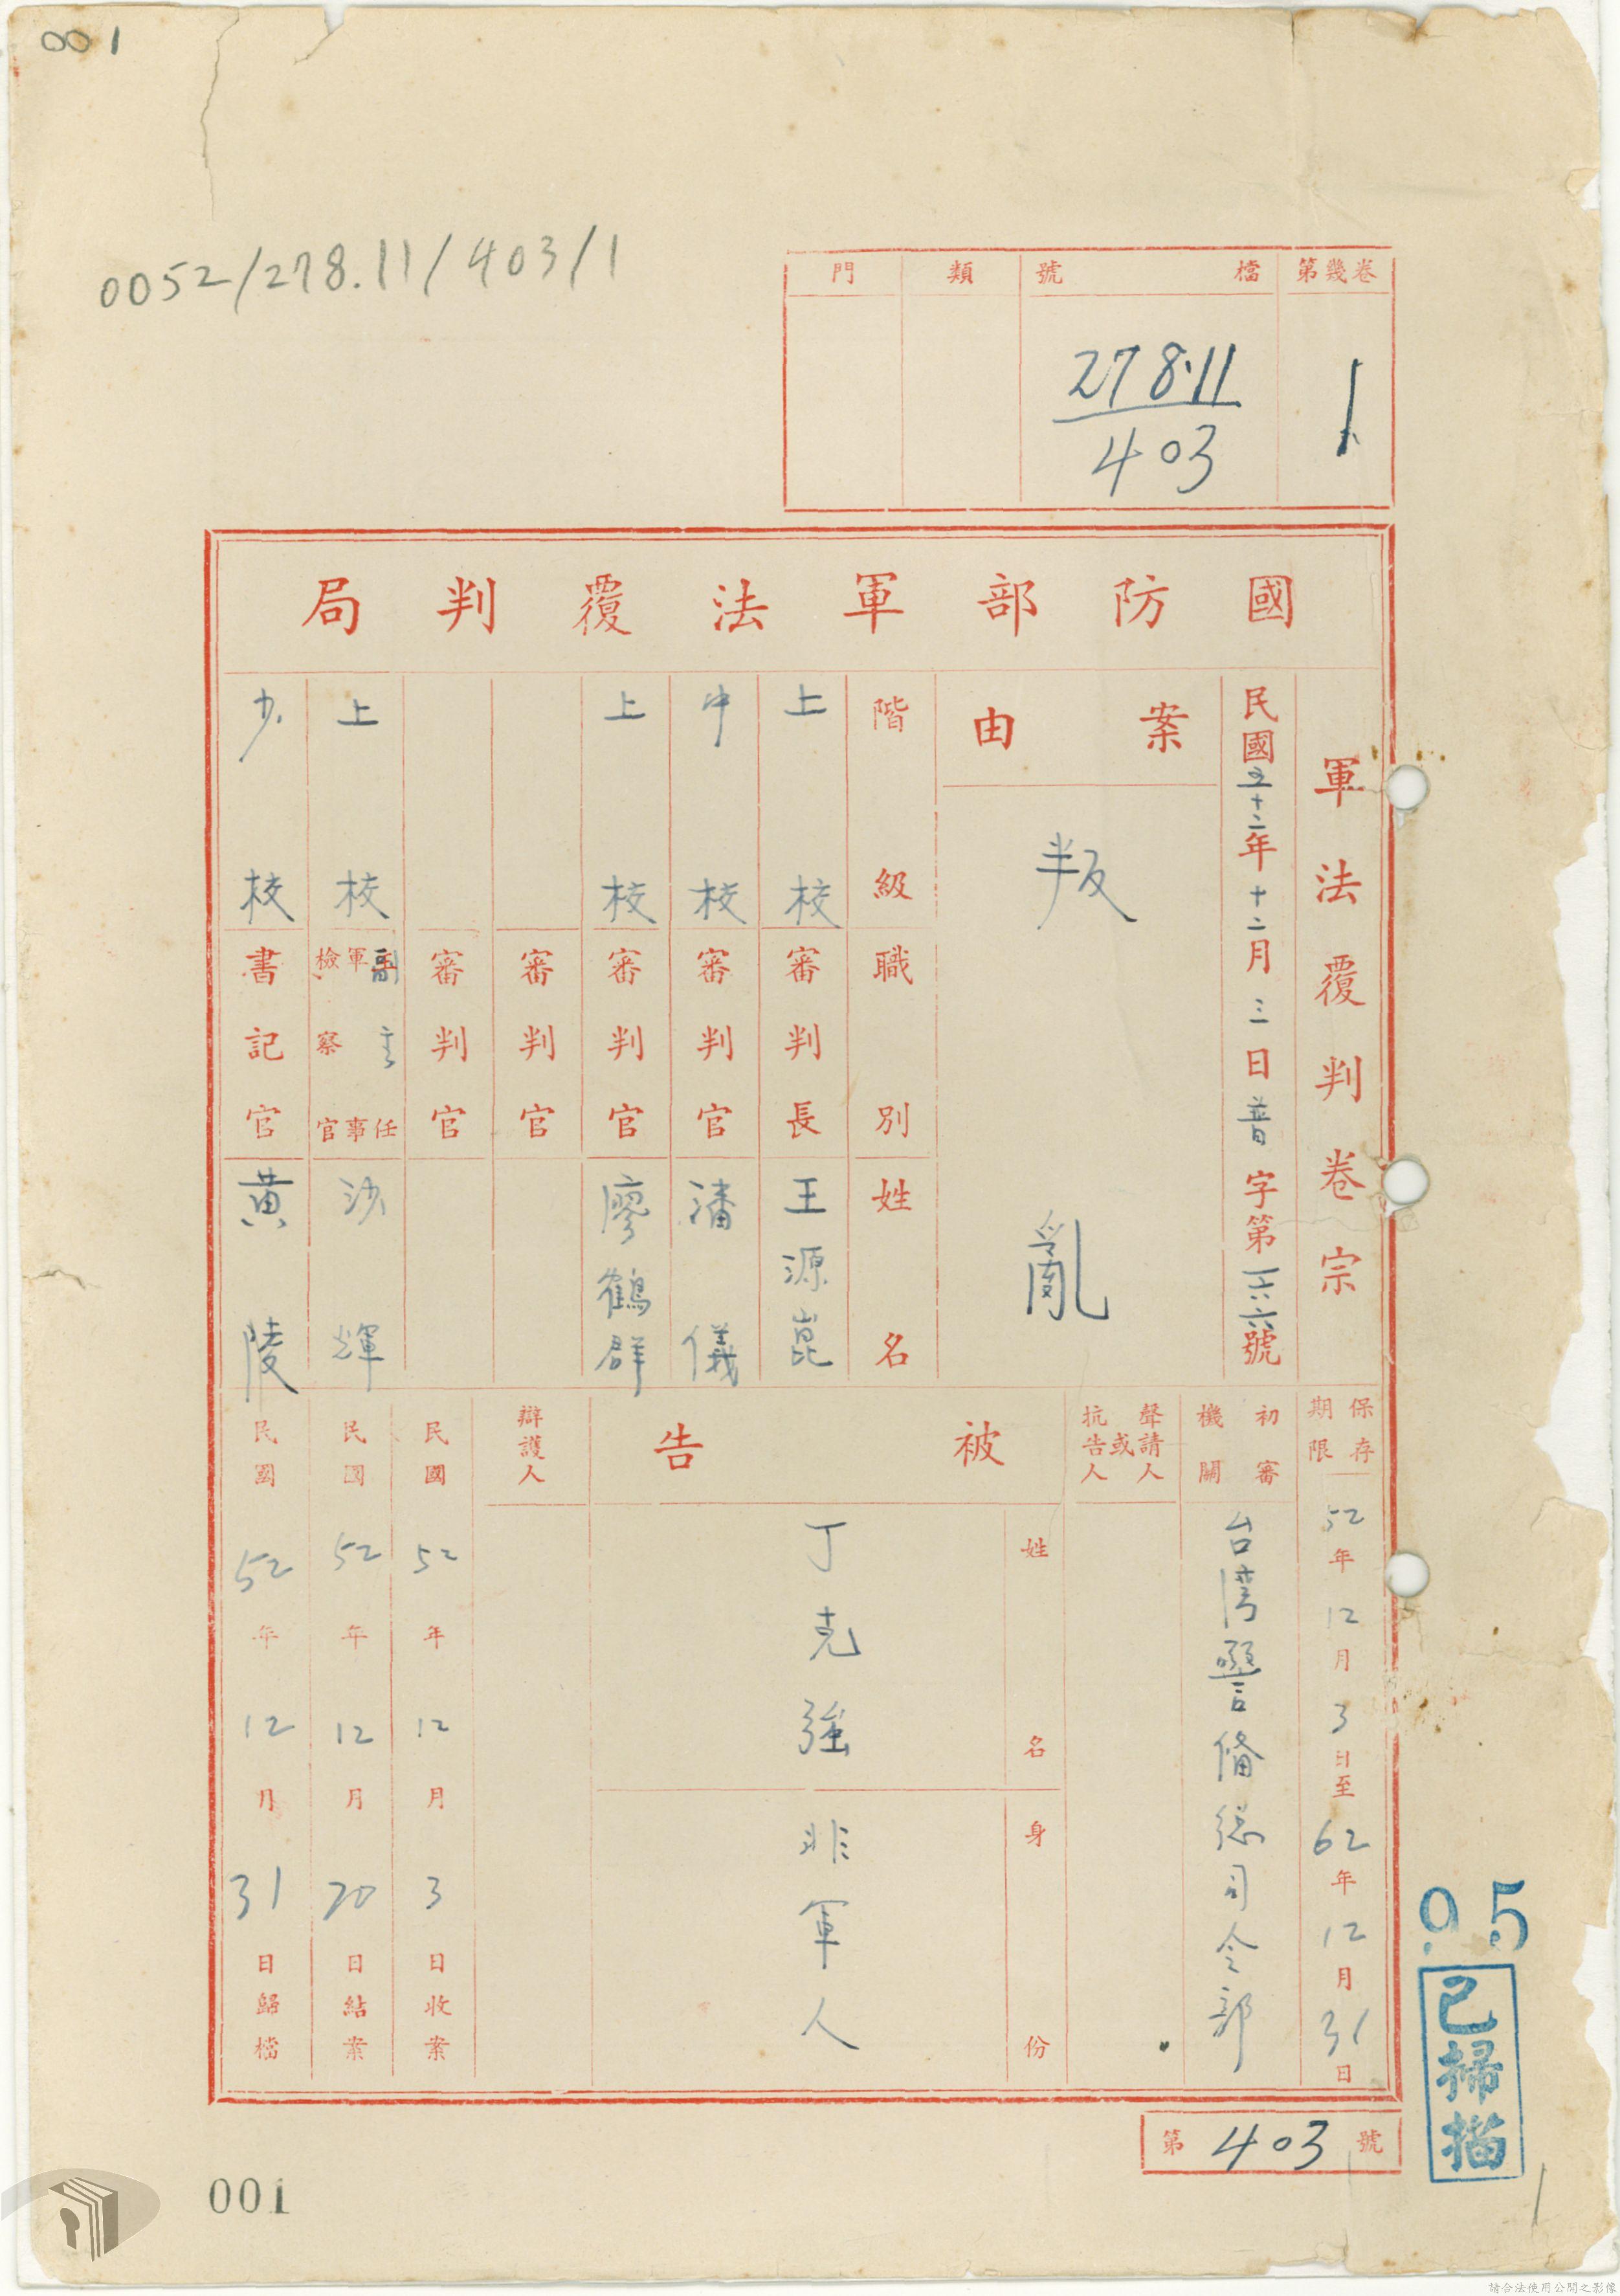 001
0052/278.11/403/1
第幾卷 1
檔號 278.11/403
類
門
國防部軍法覆判局
軍法覆判卷宗
民國五十二年十二月三日普字第一六六號
案由
叛亂
階級 職別 姓名
上校 審判長 王源崑
中校 審判官 潘儀
上校 審判官 廖鶴群
審判官
審判官
上校 副主任軍事檢察官 沙輝
少校 書記官 黃陵
保存期限
52年12月3日至62年12月31日
初審機關
台湾警備總司令部
聲請人或抗告人
被告
姓名 丁克強
身份 非軍人
辯護人
民國52年12月3日收案
民國52年12月20日結案
民國52年12月31日歸檔
第403號
95
已掃描
1
001
請合法使用公開之影像